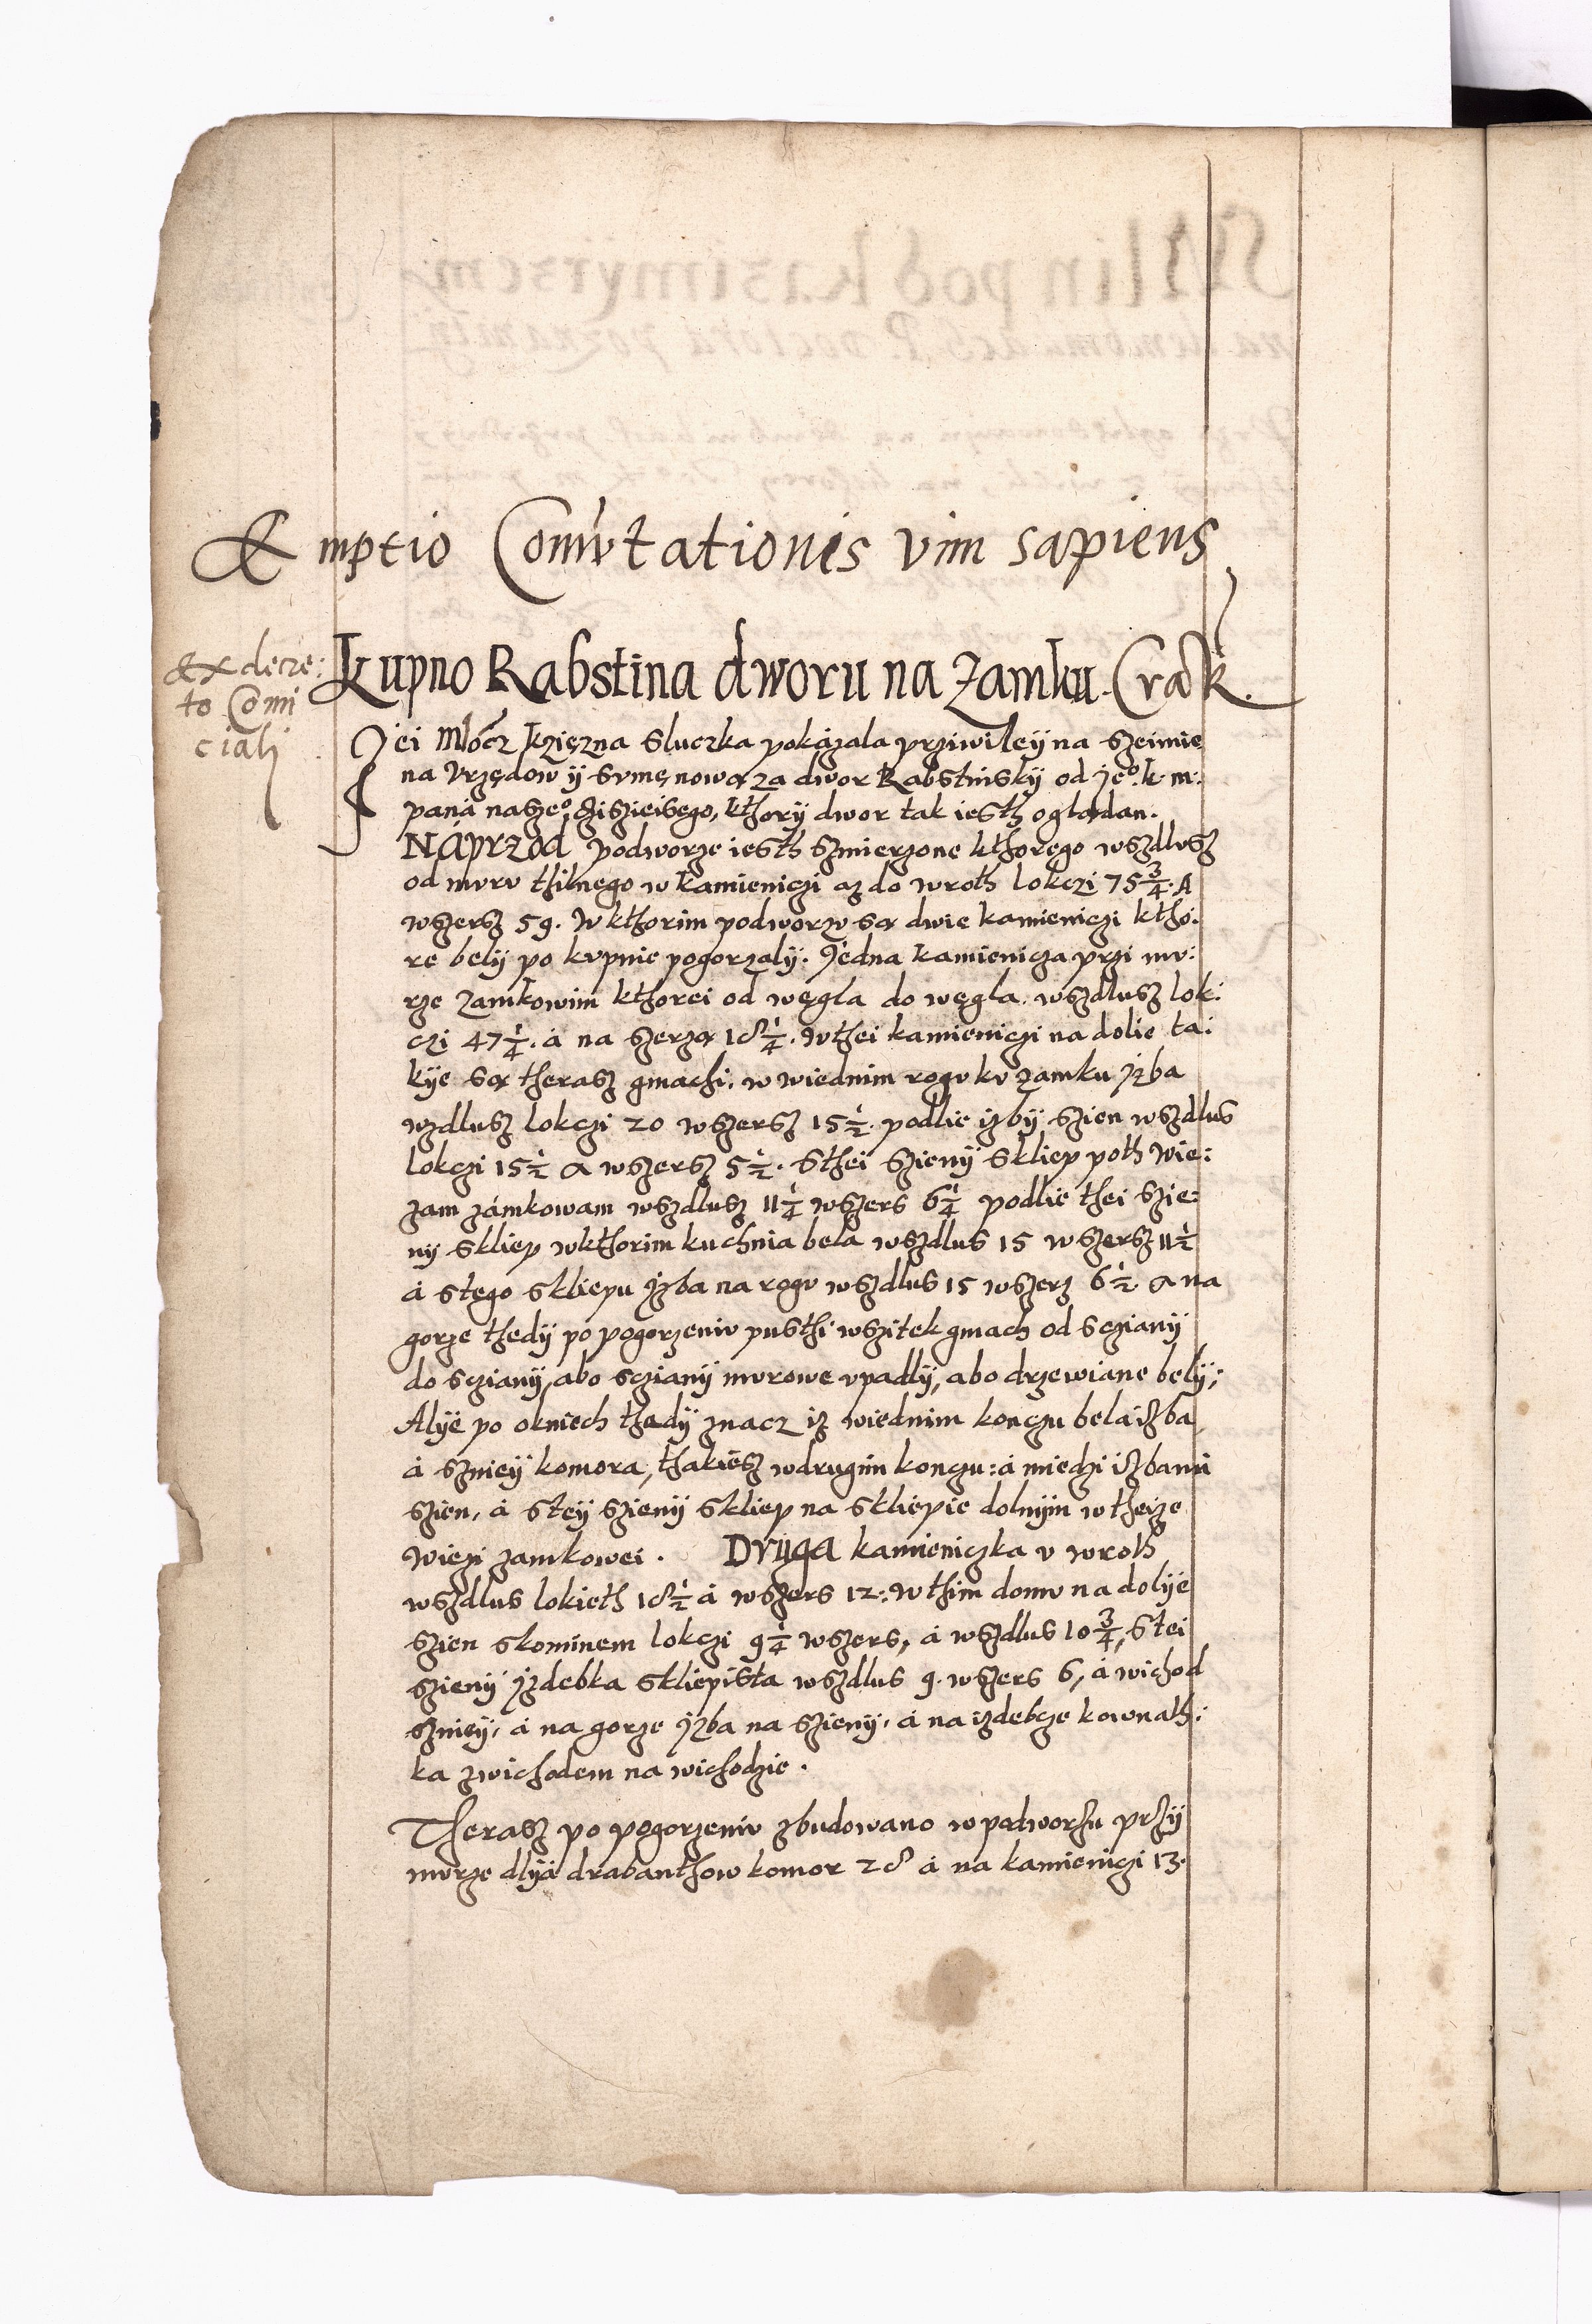 Emptio Comutationis vim sapiens
Ex decre:
to Comi
ciali
Kupno Rabstina dworu na Zamku Crac.
Jei Młoscz kziezna Sluczka pokazala prziwiley na szeimie
na Vrzędow ÿ Svmę nową za dwor Rabstinskÿ od je°. k. m:
pana nasze°, dzisieiszego, kthorÿ dwor tak iesth oglądan.
Náprzod podworze iesth szmierzone kthorego wszdlusz
od mvrv thilnego w kamieniczi az do wroth lokczi 75 3/4. A
wszersz 59. W kthorim podworzv są dwie kamieniczi ktho:
re belÿ po kvpnie pogorzalÿ. Jedna kamienicza przi mv:
rze zamkowim kthorei od węgla do węgla. wszdlusz lok:
czi 47 1/4. á na szerzą 18 1/4. W thei kamieniczi na dolie ta:
kÿe są therasz gmachi. w wiednim rogv kv zamku jzba
wzdlusz lokczi 20 wszersz 15 1/2. podlie izbÿ szien wszdlus
lokczi 15 1/2 a wszersz 5 1/2. Sthei szienÿ skliep poth wie:
zam zámkowam wszdlusz 11 1/4 wszers 6 1/4 podlie thei szie:
nÿ skliep wkthorim kuchnia bela wszdlus 15 wszersz 11 1/2
á stego skliepu jzba na rogv wszdlus 15 wszerz 6 1/2. a na
gorze thedÿ po pogorzeniv pusthi wszitek gmach od scianÿ
do scianÿ, abo scianÿ mvrowe vpadlÿ, abo drzewiane belÿ;
Alÿe po okniech thedÿ znacz iz wiednim konczu bela iszba
á szniey komora, thakiesz wdrugim konczu: á miedzi iszbami
szien, á stey szienÿ skliep na skliepie dolnÿm w theize
wiezi zamkowei. Druga kamieniczka v wroth
wszdlus lokieth 18 1/2 á wszers 12: W thim domv na dolÿe
szien skominem lokczi 9 1/4 wszers, á wszdlus 10 3/4, Stei
szienÿ jzdebka skliepista wszdlus 9. wszers 6, á wichod
szniey, á na gorze jzba na szienÿ, á na izdebcze kownath:
ka zwichodem na wichodzie.
Therasz po pogorzeniv zbudowano w podworzu przÿ
mvrze dlÿa drabanthow komor 28 á na kamieniczi 13.